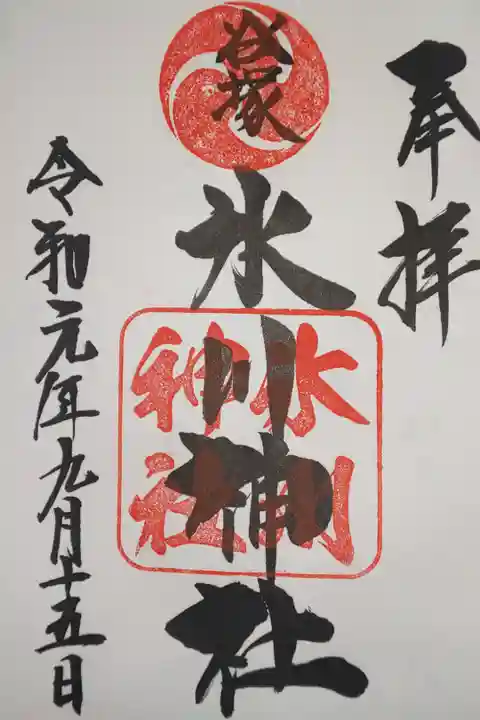 奉拝
塚
氷川神社
氷川
神社
令和元年九月十五日